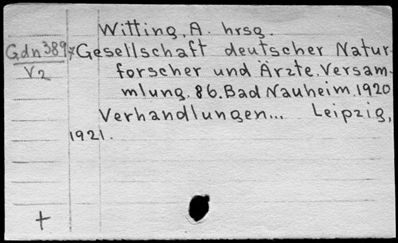 Witting, A. hrsg.
Gdn389y Gesellschaft deutscher Natur
V2 forscher und Ärzte. Versam-
mlung. 86. Bad Nauheim. 1920
Verhandlungen... Leipzig,
1921.
+